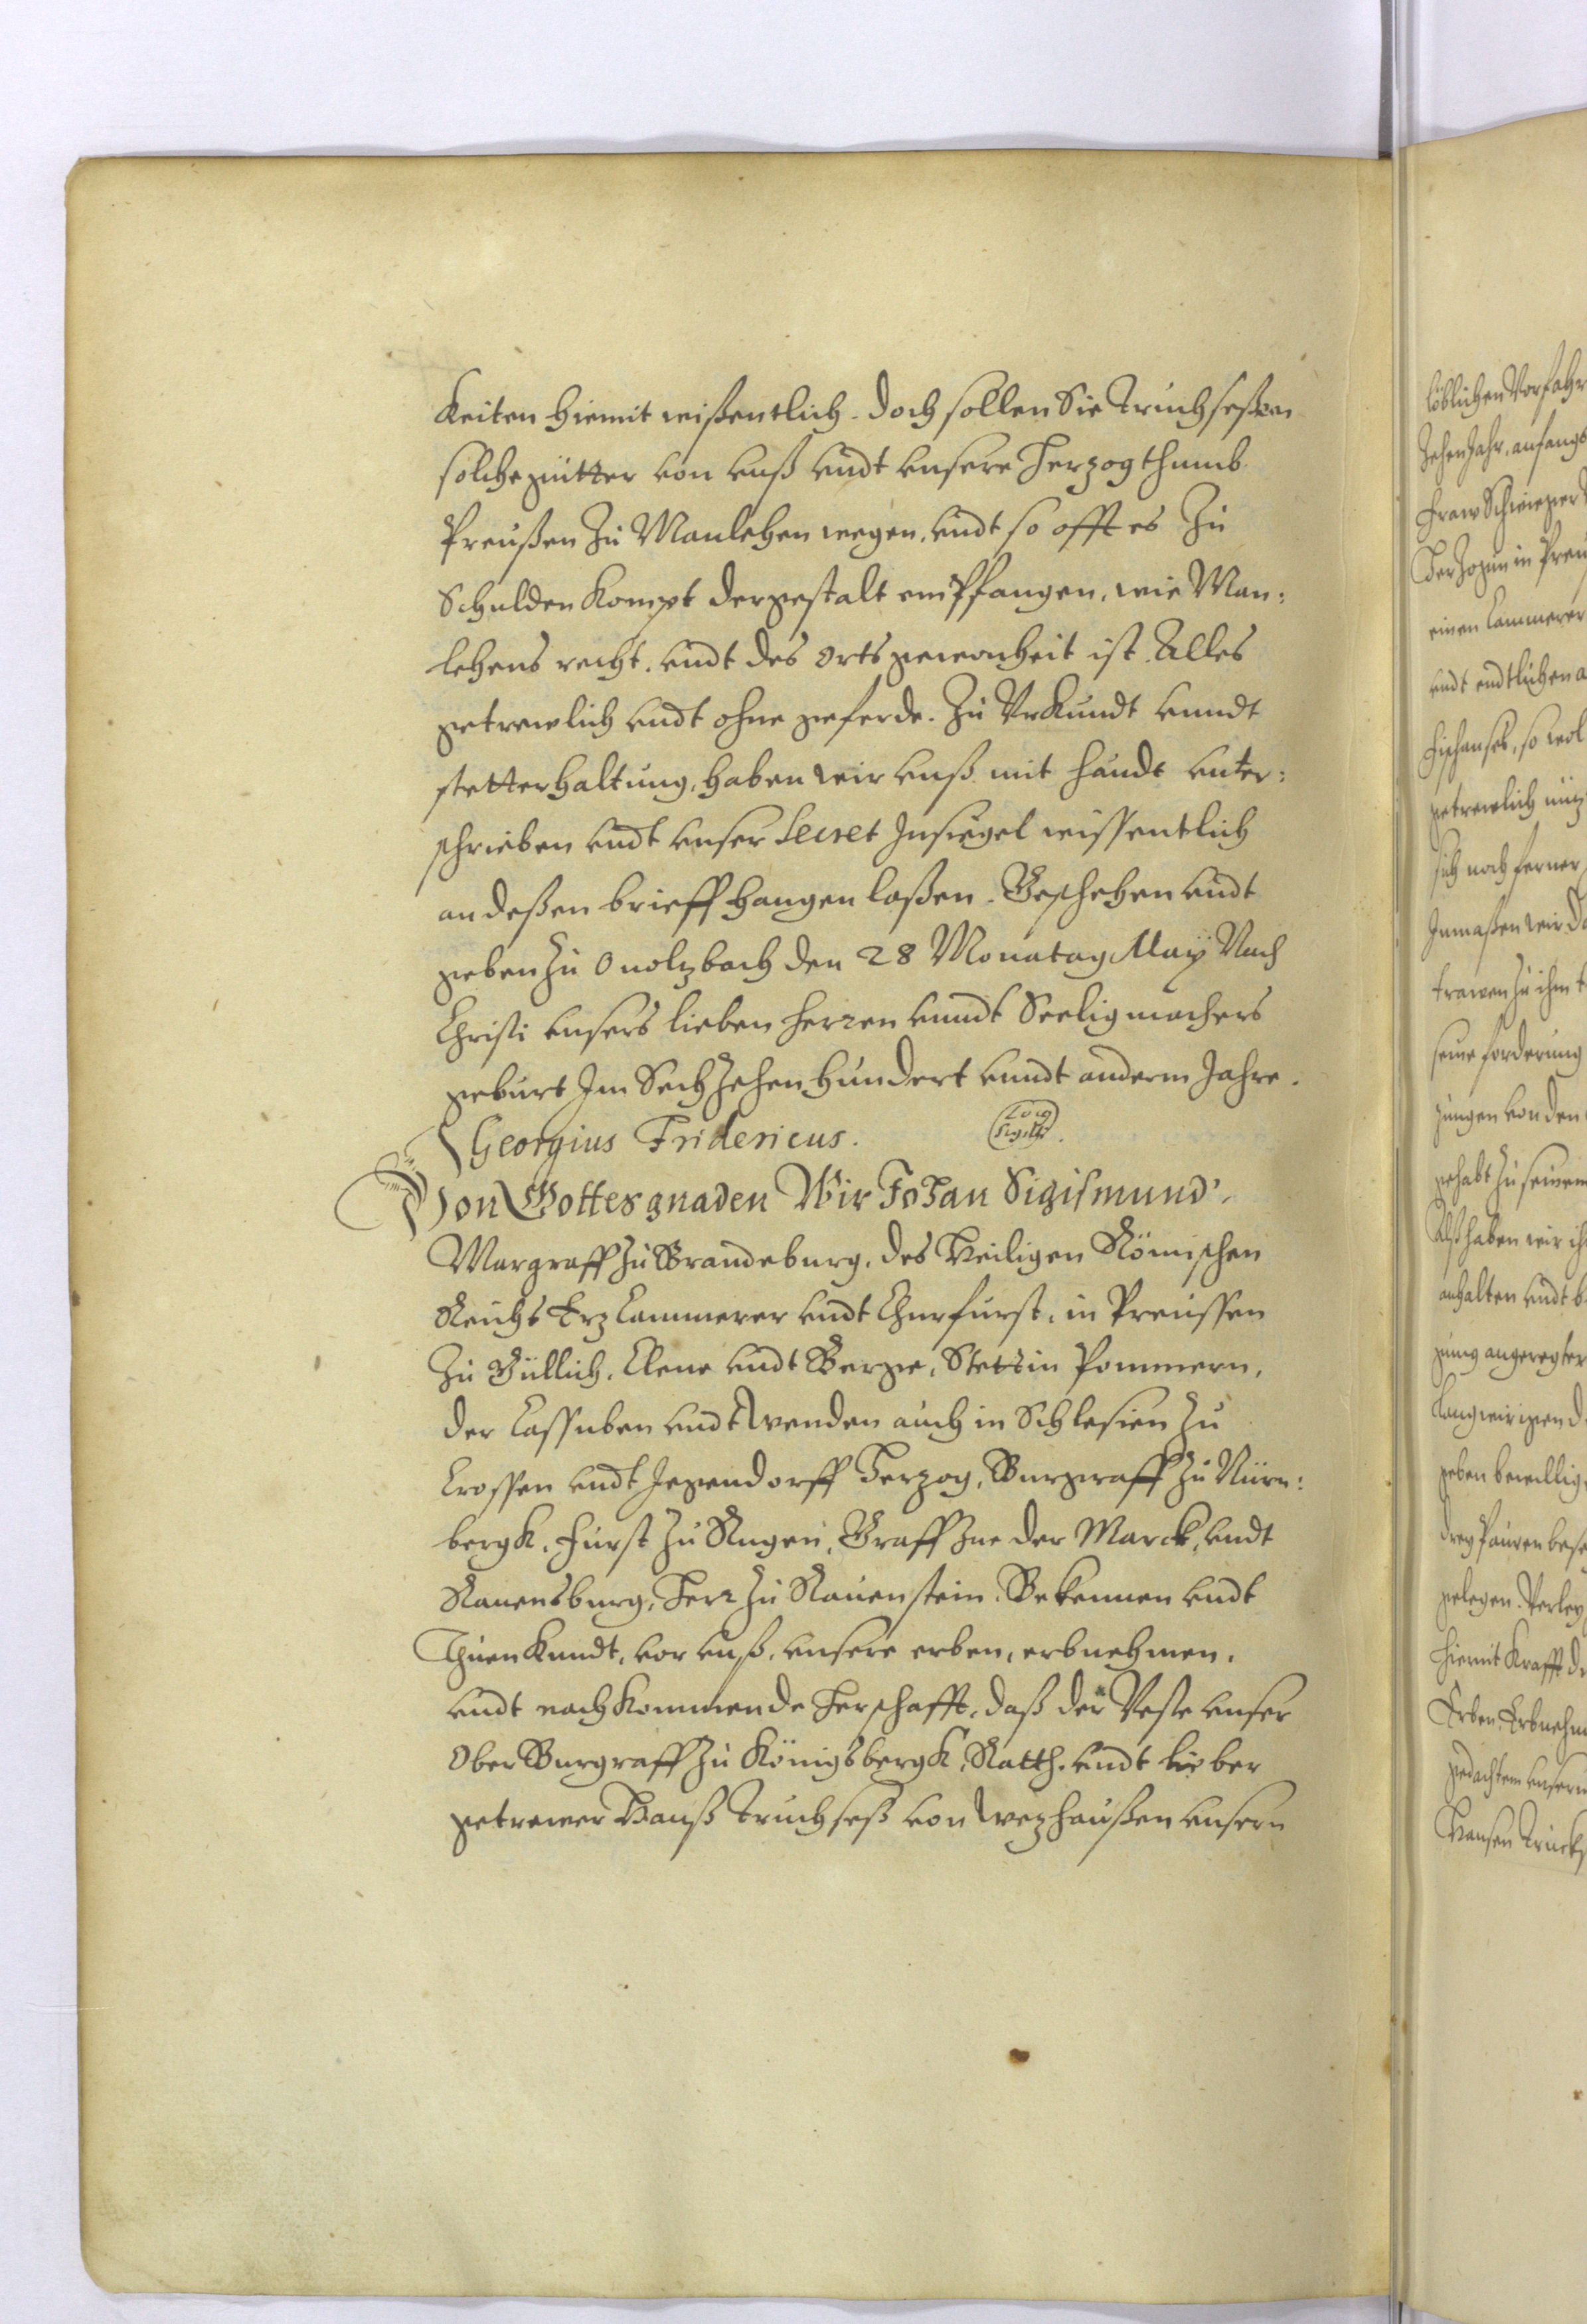 Keiten hiemit wißentlich. Doch sollen Sie Truchseßen
solche gütter von unß undt unsere Herzogthumb
Preußen Zu Manlehen tragen, undt so offt es Zu
Schulden Kompt dergestalt empfangen, wie Man:
lehens recht, undt des Orts gewonheit ist. Alles
getrewlich undt ohne geferde. Zu Vrkundt unndt
stetter haltung, haben wir unß mit handt unter:
schrieben undt unser Secret Insiegel wissentlich
an deßen brieff hangen laßen. Geschehen undt
geben Zu Onolzbach den 28 Monatag May Nach
Christi unsers lieben Herren unndt Seeligmachers
geburt Im Sechzehen hundert unndt andern Jahre.
Georgius Fridericus. Loco Sigilli.
Von Gottes gnaden Wir Johan Sigismund,
Margraff Zu Brandeburg, des Heiligen Römischen
Reichs Erz Cammerer undt Churfürst, in Preussen
Zu Güllich, Cleve undt Berge, Stettin Pommern,
der Cassuben undt Wenden auch in Schlesien Zu
Crossen undt Jegendorff Herzog, Burggraff Zu Nürn:
bergk, Fürst Zu Rugen, Graff Zue der Marck, undt
Ravensburg, Herr Zu Ravenstein. Bekennen undt
Thuen Kundt, vor unß, unsere erben, erbnehmen,
undt nachkommende Herschafft, daß der Veste unser
Ober Burgraff Zu Königsbergk, Rath. undt lieber
getrewer Hanß Truchseß von Wezhaußen unsern
löblichen Vorfahr
Zehen Jahr, anfangs
Fraw Schwieger
Herzogin in Preu
einen Cammerer
undt endtlichen a
Fischauses, so wol
getrewlich
sich noch ferner
Inmaßen wir
trawen Zu ihm
seine forderung
von den
gehabt Zu seinem
Alß haben wir ih
anhalten undt b
angeregter
geben bewillig
drey Pauren bese
gelegen. Verley
hiermit Krafft de
Erben, Erbnehm
gedachtem unsern
Hansen Trucks